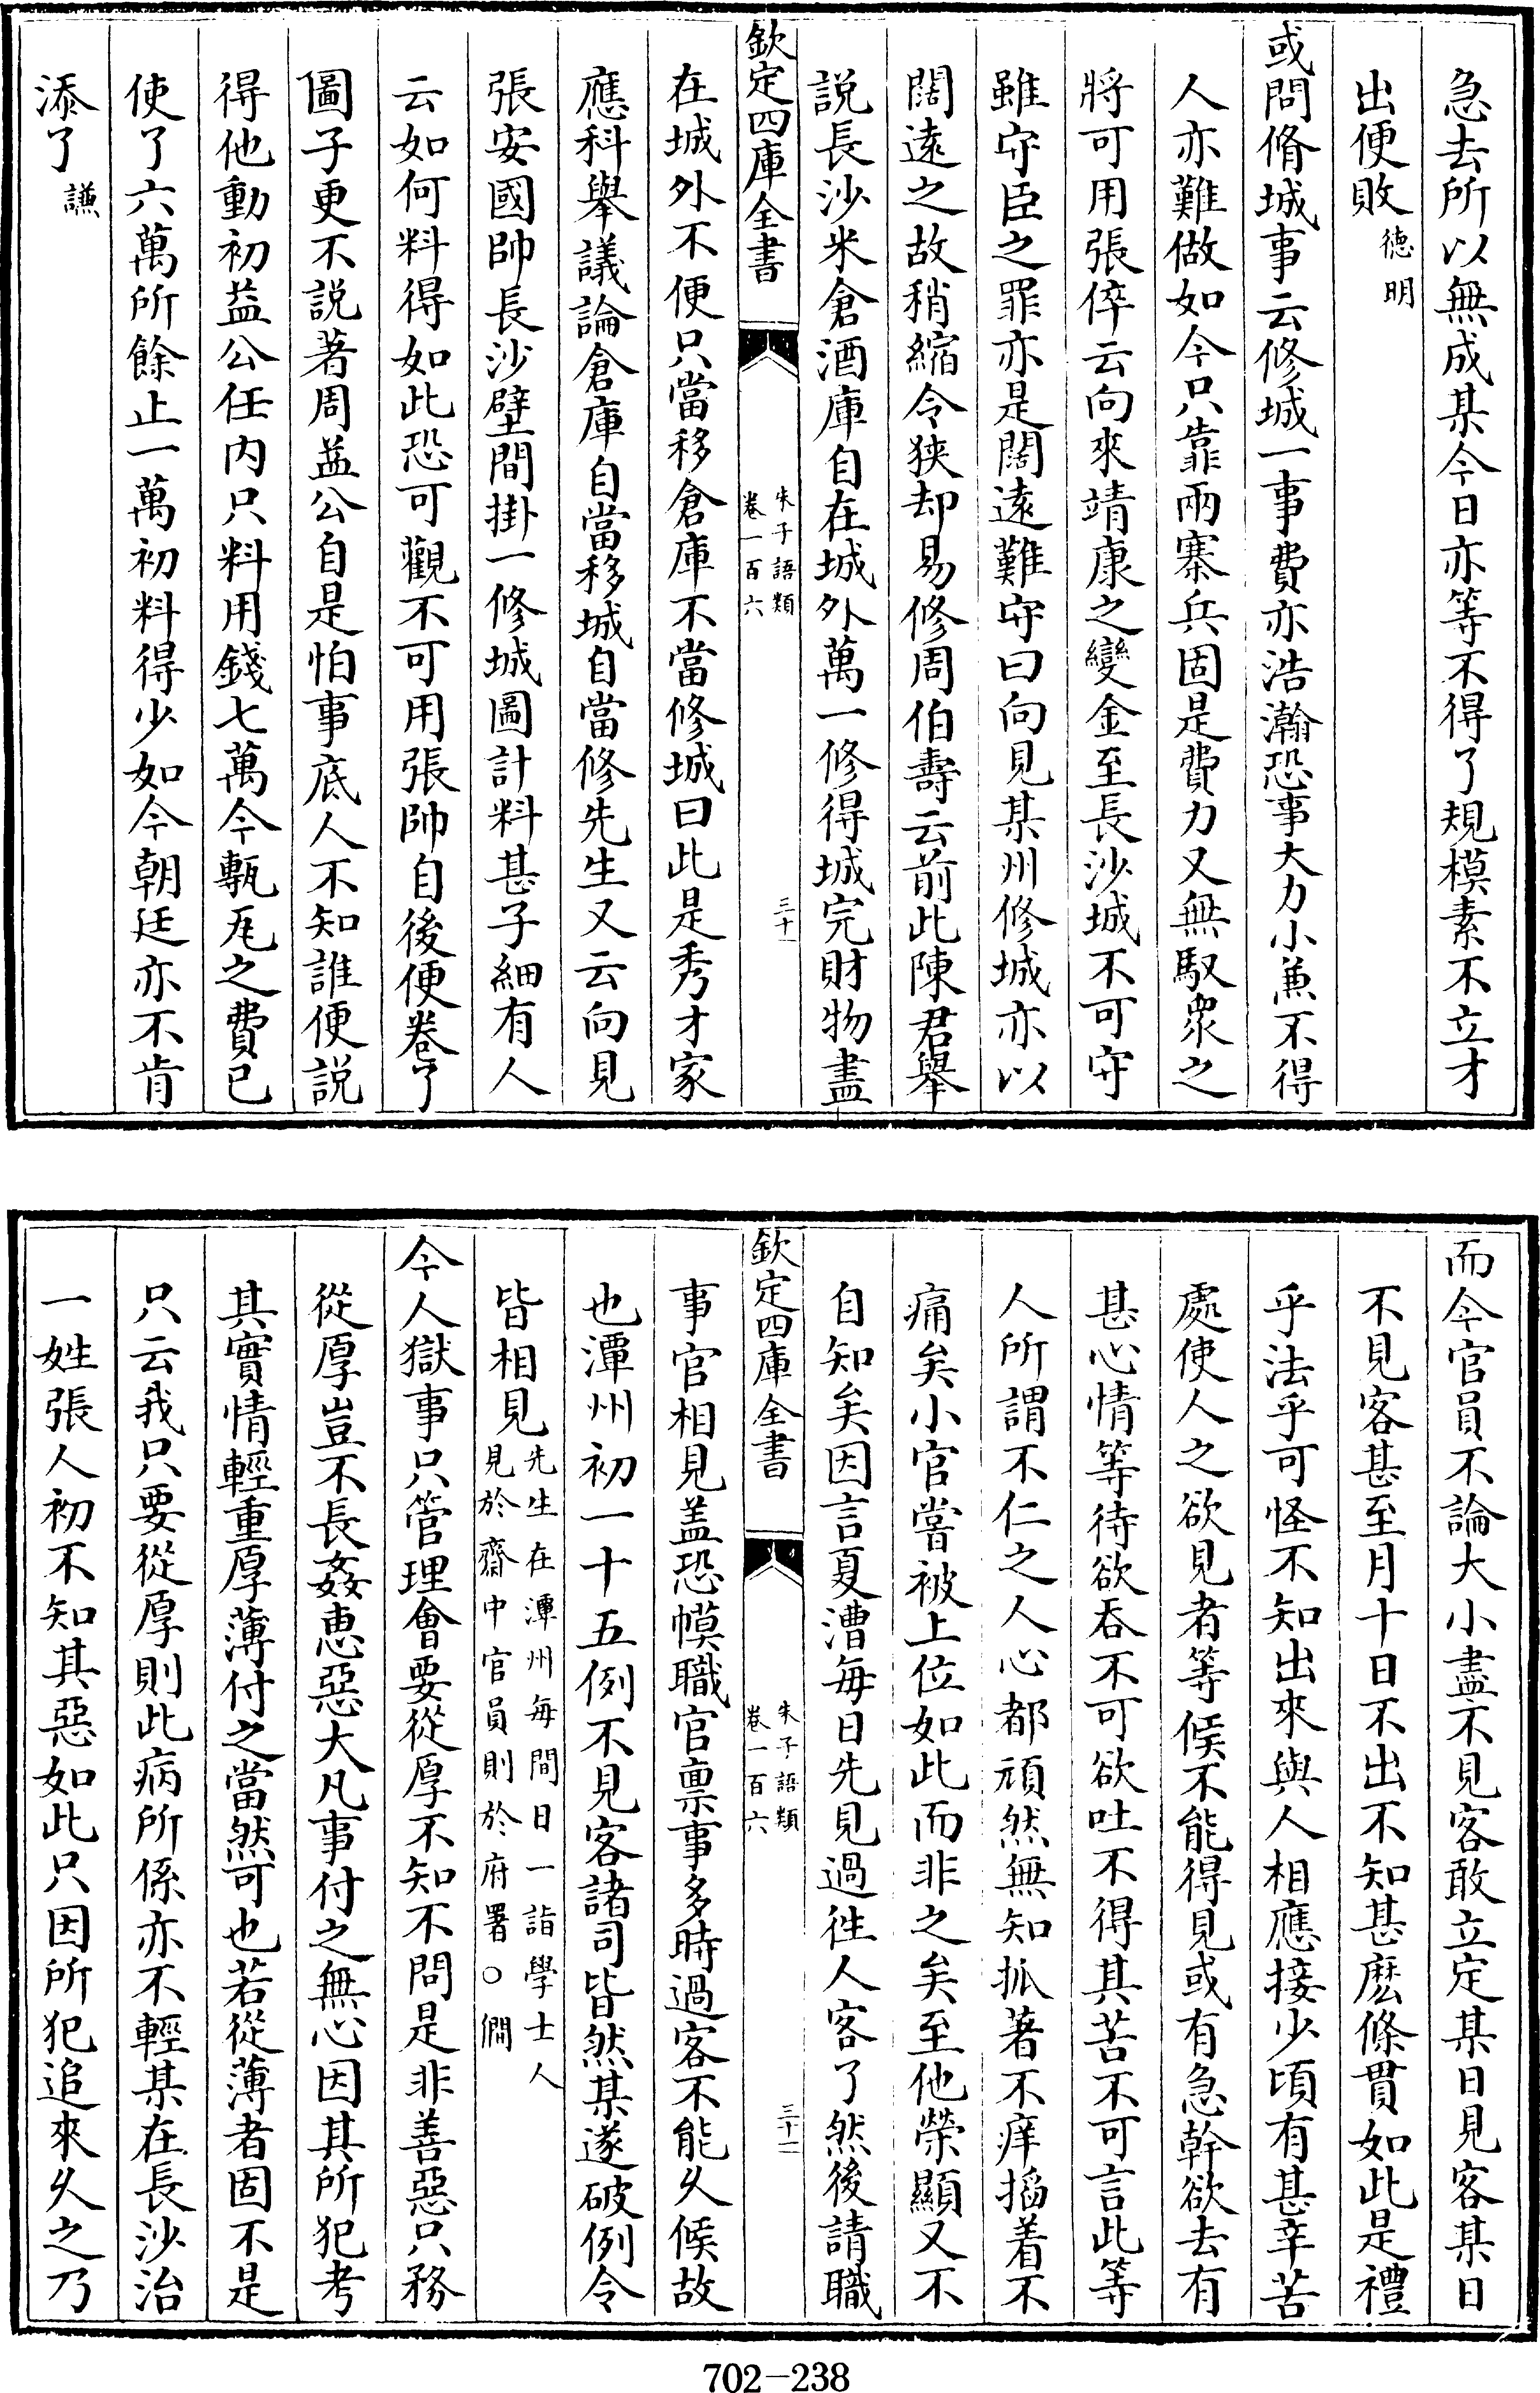 急去所以無成某今日亦等不得了規模素不立才
出便敗德明
或問脩城事云修城一事費亦浩瀚恐事大力小兼不得
人亦難做如今只靠兩寨兵固是費力又無馭衆之
將可用張倅云向來靖康之變金至長沙城不可守
雖守臣之罪亦是闊遠難守曰向見某州修城亦以
闊遠之故稍縮令狹却易修周伯壽云前此陳君舉
説長沙米倉酒庫自在城外萬一修得城完財物盡
欽定四庫全書
朱子語類
卷一百六
三十一
在城外不便只當移倉庫不當修城曰此是秀才家
應科舉議論倉庫自當移城自當修先生又云向見
張安國帥長沙壁間掛一修城圖計料甚子細有人
云如何料得如此恐可觀不可用張帥自後便卷了
圖子更不説著周益公自是怕事底人不知誰便説
得他動初益公任内只料用錢七萬今甎瓦之費已
使了六萬所餘止一萬初料得少如今朝廷亦不肯
添了謙
而今官員不論大小盡不見客敢立定某日見客某日
不見客甚至月十日不出不知甚麽條貫如此是禮
乎法乎可怪不知出來與人相應接少頃有甚辛苦
處使人之欲見者等候不能得見或有急幹欲去有
甚心情等待欲吞不可欲吐不得其苦不可言此等
人所謂不仁之人心都頑然無知抓著不痒搯着不
痛矣小官嘗被上位如此而非之矣至他榮顯又不
自知矣因言夏漕每日先見過徃人客了然後請職
欽定四庫全書
朱子語類
卷一百六
三十一
事官相見盖恐幙職官禀事多時過客不能乆候故
也潭州初一十五例不見客諸司皆然某遂破例令
皆相見先生在潭州每間日一詣學士人
見於齋中官員則於府署○僩
今人獄事只管理會要從厚不知不問是非善惡只務
從厚豈不長姦惠惡大凡事付之無心因其所犯考
其實情輕重厚薄付之當然可也若從薄者固不是
只云我只要從厚則此病所係亦不輕某在長沙治
一姓張人初不知其惡如此只因所犯追來乆之乃
702-238